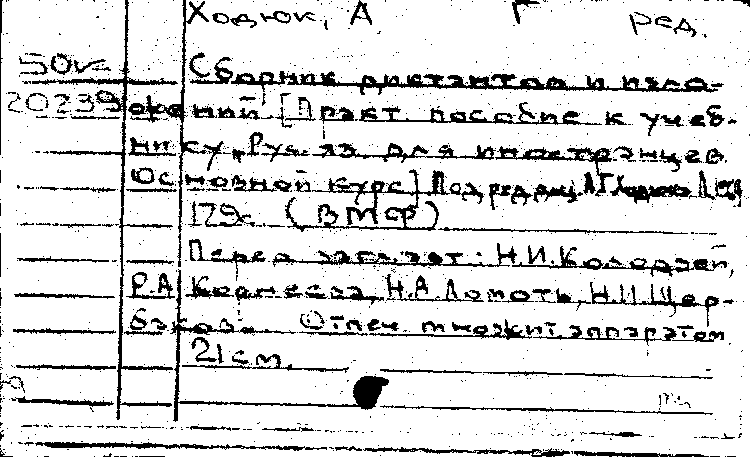 Ходюк, А Г ред.
50к. Сборник диктантов и изло-
20239 жений [Практ пособие к учеб-
нику „Рус. яз. для иностранцев
Основной курс] Под ред доц. А.Г. Ходюка Л
179с (ВМФ)
Перед заглавт: Н.И.Колодзей,
Р.А Корнеева, Н.А Ломоть, Н.И.Щер-
бакова. Отпеч. множит. аппаратом
21см.